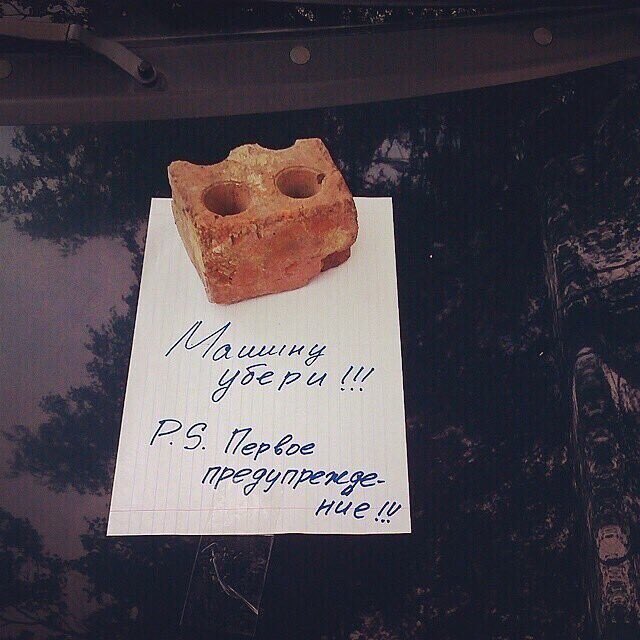 Машину
убери!!!
P.S. Первое
предупрежде-
ние!!!